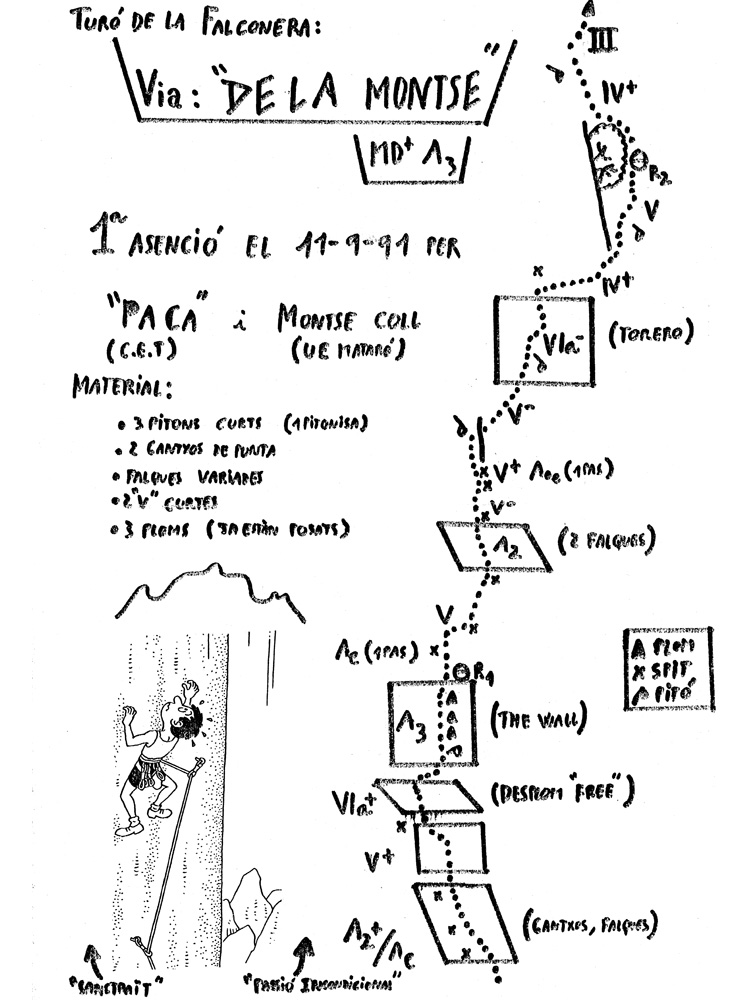 TURÓ DE LA FALCONERA:
Via: "DE LA MONTSE"
MD+ A3
1ª ASENCIÓ EL 11-9-91 PER
"PACA" i MONTSE COLL
(C.E.T) (UE MATARÓ)
MATERIAL:
• 3 PITONS CURTS (1 PITONISA)
• 2 GANTXOS DE PUNTA
• FALQUES VARIADES
• 2 "V" CURTES
• 3 PLOMS (JA ESTÀN POSATS)
III
IV+
R2
V
IV+
VIa- (TORERO)
V-
V+ A0e (1 PAS)
V-
A2 (2 FALQUES)
V
Ae (1 PAS)
R1
A3 (THE WALL)
PLOM
x SPIT
PITÓ
VIa+ (DESPLOM "FREE")
V+
A2+/Ae (GANTXOS, FALQUES)
"SANCTMIT" "PASSIÓ INCONDICIONAL"